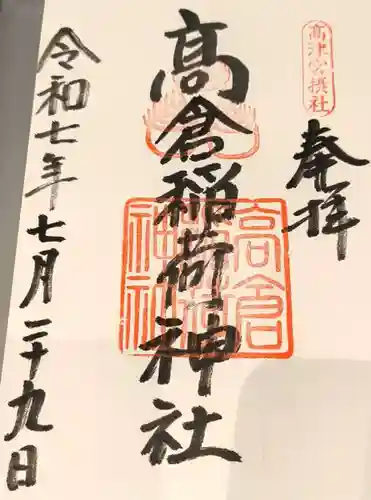 高津宮摂社
奉拝
髙倉稲荷神社
高倉
神社
令和七年七月二十九日